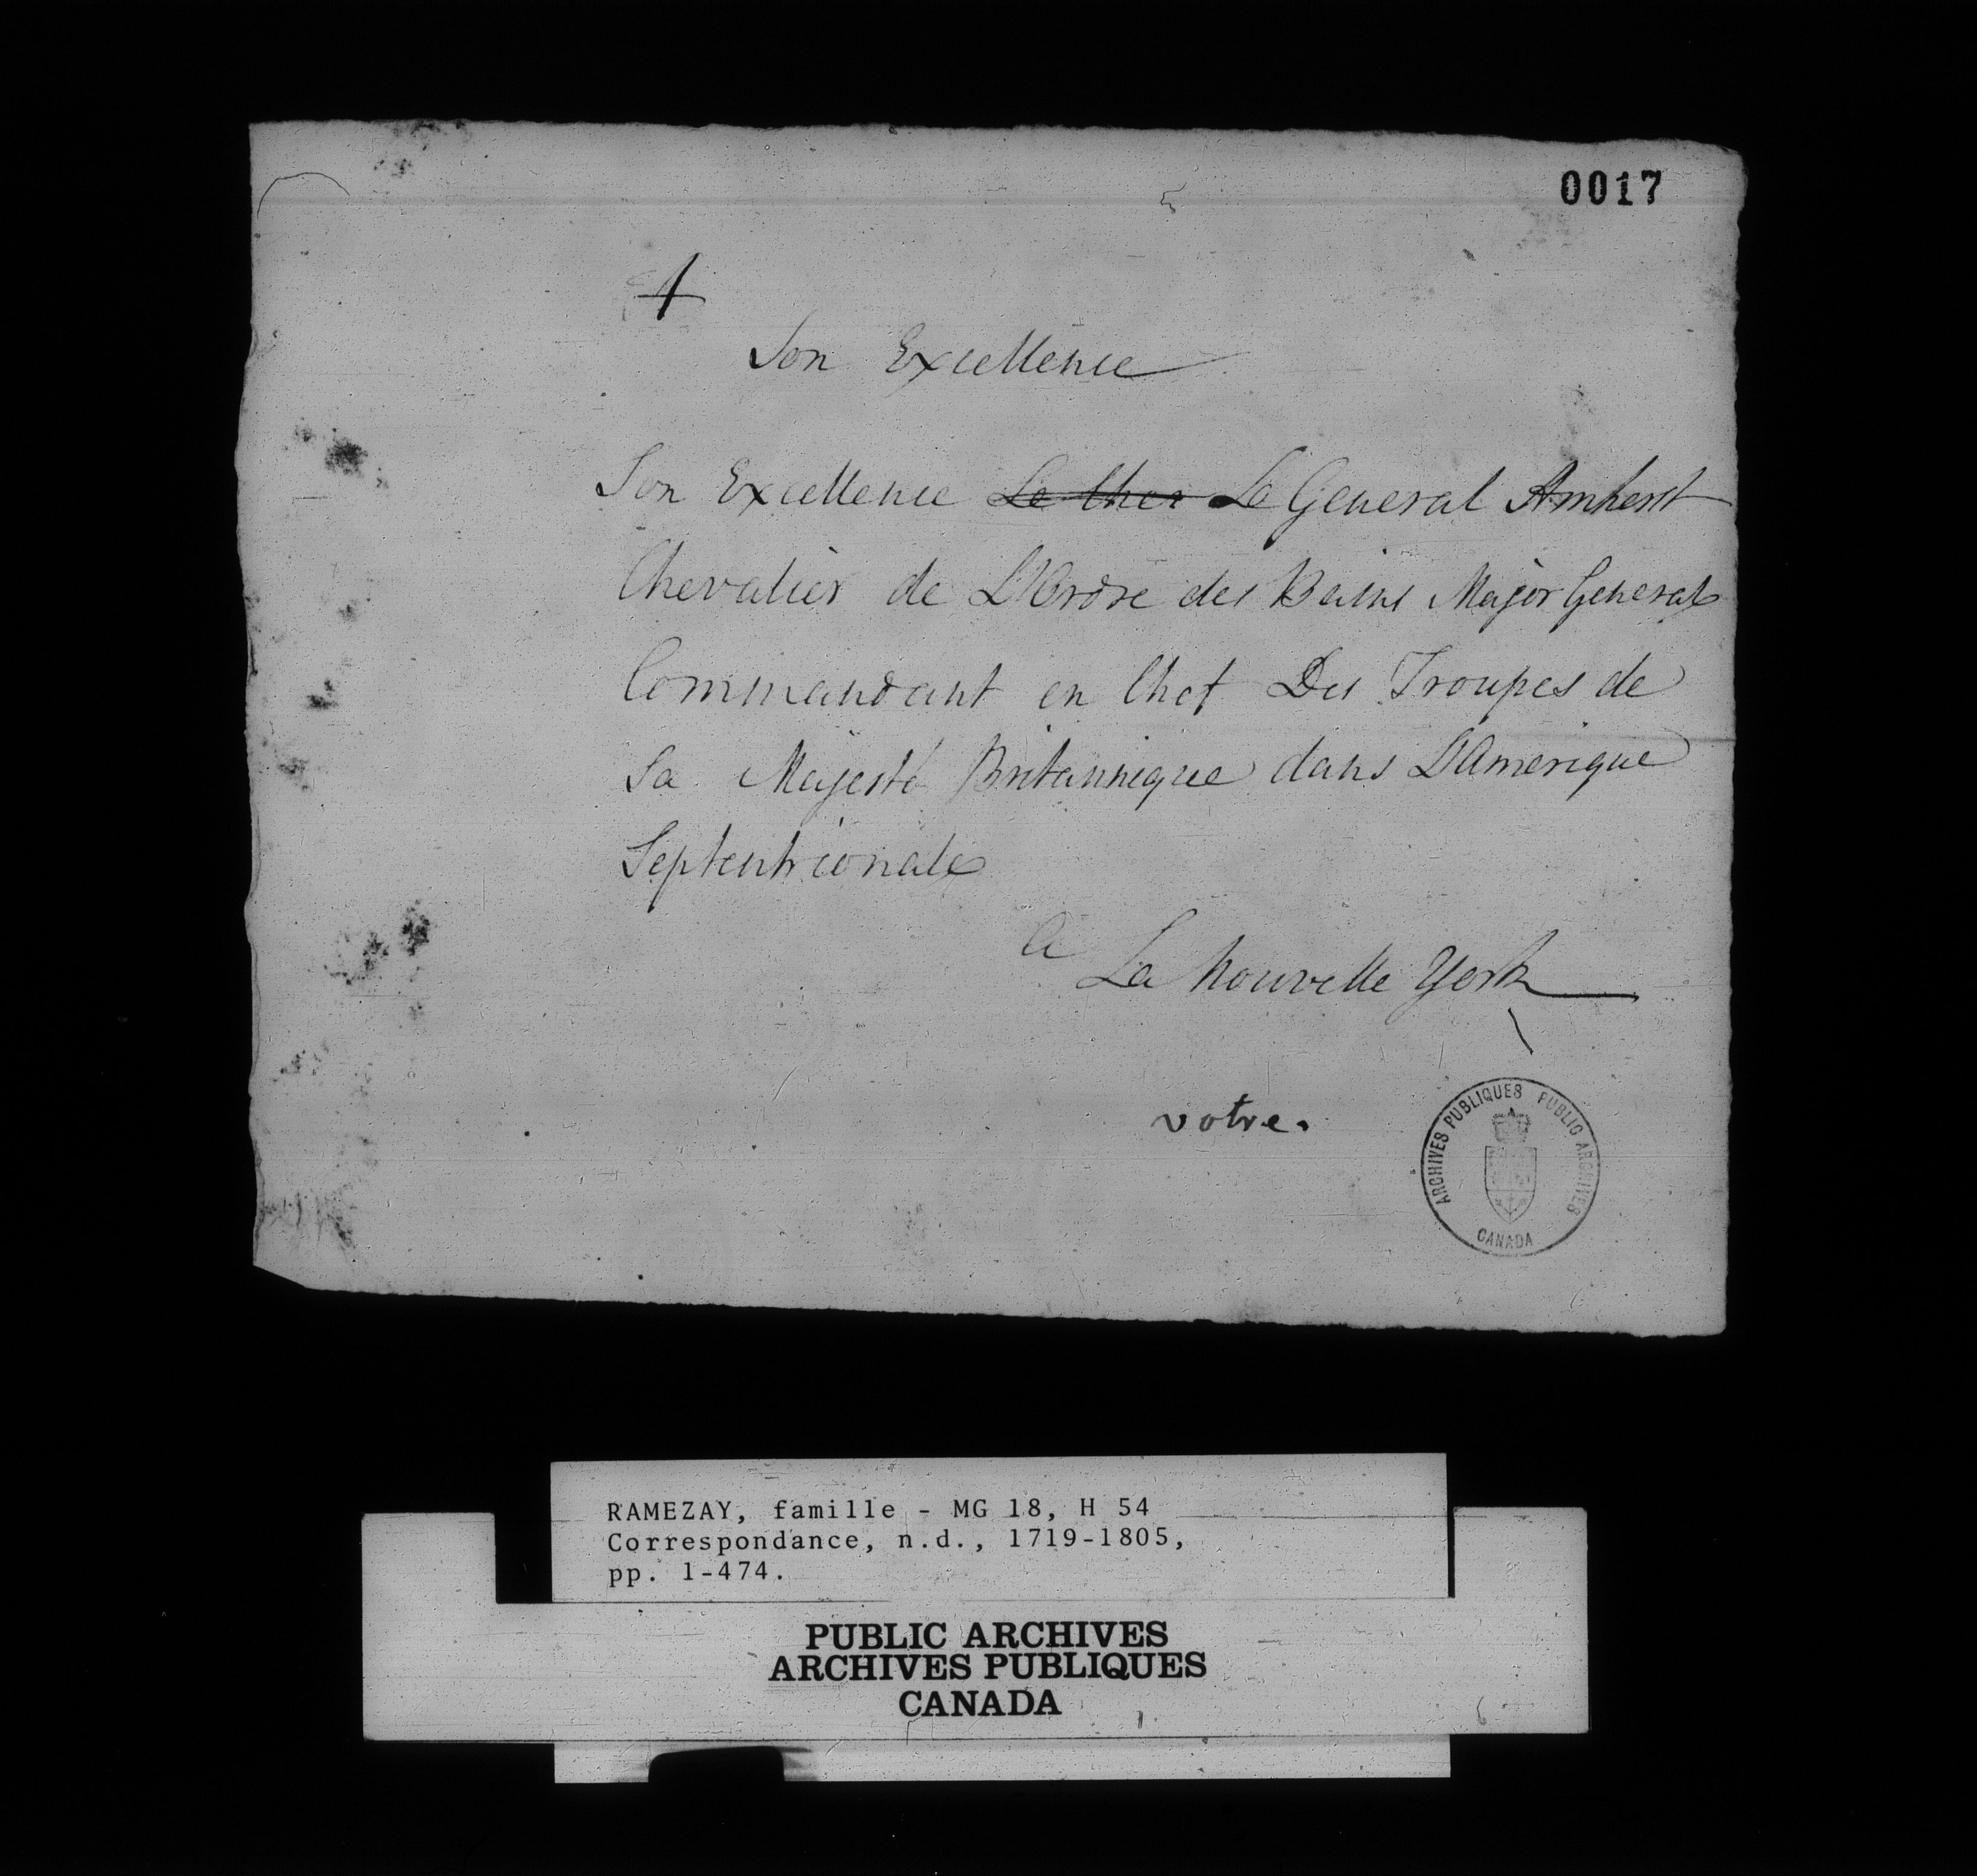 0017
A
Son Excellence
Son Excellence Le Cher Le General Amherst
Chevalier de L'Ordre des Bains Major General
Commandant en Chef Des Troupes de
Sa Majesté Britannique dans L'Amerique
Septentrionale
a
La Nouvelle York
votre.
ARCHIVES PUBLIQUES PUBLIC ARCHIVES
CANADA
RAMEZAY, famille - MG 18, H 54
Correspondance, n.d., 1719-1805,
pp. 1-474.
PUBLIC ARCHIVES
ARCHIVES PUBLIQUES
CANADA